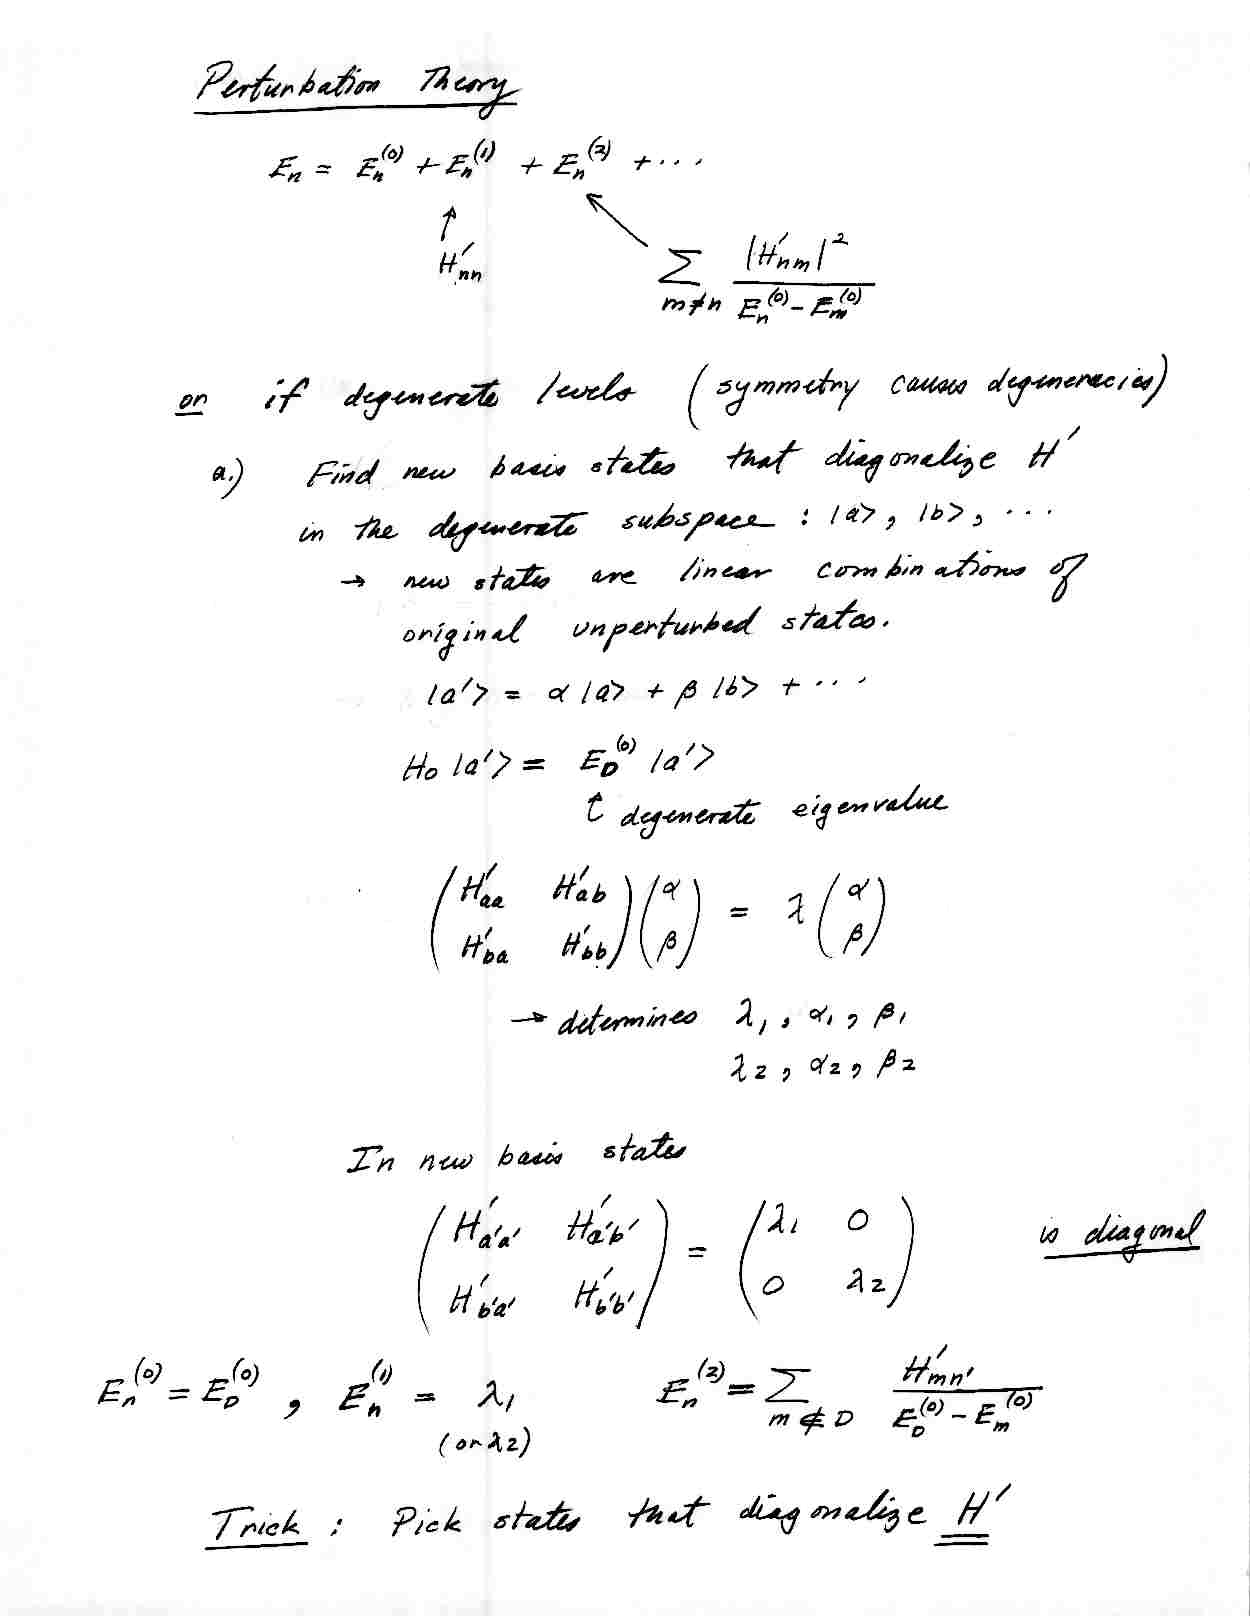 Perturbation Theory
E_n = E_n^(0) + E_n^(1) + E_n^(2) + ···
↑
H'_nn
∑_{m≠n} |H'_nm|^2 / (E_n^(0) - E_m^(0))
or if degenerate levels (symmetry causes degeneracies)
a.) Find new basis states that diagonalize H'
in the degenerate subspace : |a>, |b>, ···
→ new states are linear combinations of
original unperturbed states.
|a'> = α |a> + β |b> + ···
H_0 |a'> = E_D^(0) |a'>
↑ degenerate eigenvalue
( H'_aa H'_ab ) ( α ) = λ ( α )
( H'_ba H'_bb ) ( β ) ( β )
→ determines λ_1, α_1, β_1
λ_2, α_2, β_2
In new basis states
( H'_a'a' H'_a'b' ) = ( λ_1 0 ) is diagonal
( H'_b'a' H'_b'b' ) ( 0 λ_2 )
E_n^(0) = E_D^(0) , E_n^(1) = λ_1 E_n^(2) = ∑_{m∉D} H'_mn' / (E_D^(0) - E_m^(0))
(or λ_2)
Trick : Pick states that diagonalize H'